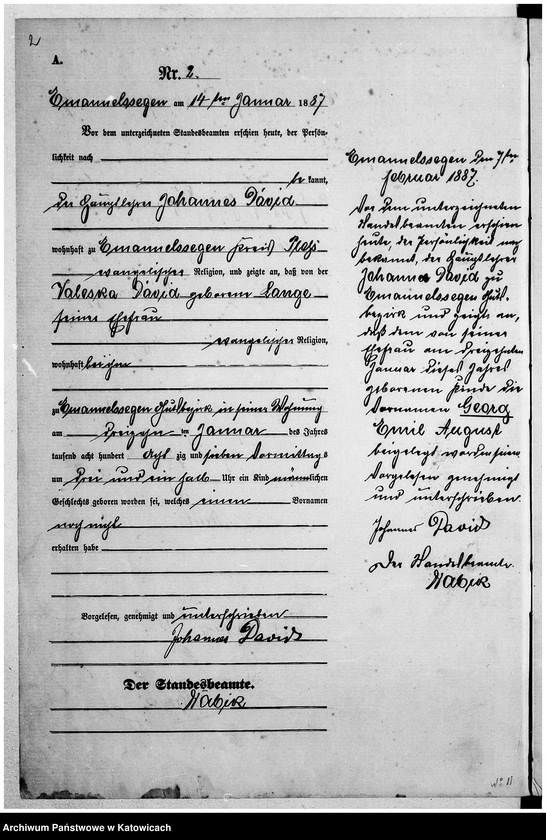 2
A.
Nr. 2.
Emanuelssegen am 14ten Januar 1887
Vor dem unterzeichneten Standesbeamten erschien heute, der Persön-
lichkeit nach
be kannt,
der Hauptlehrer Johannes David
wohnhaft zu Emanuelssegen Kreis Pleß
evangelischer Religion, und zeigte an, daß von der
Valeska David geborene Lange
seiner Ehefrau
evangelischer Religion,
wohnhaft bei ihm
zu Emanuelssegen Gutsbezirk in seiner Wohnung
am dreizehn ten Januar des Jahres
tausend acht hundert Acht zig und sieben Vormittags
um drei und ein halb Uhr ein Kind männlichen
Geschlechts geboren worden sei, welches einen Vornamen
noch nicht
erhalten habe
Vorgelesen, genehmigt und unterschrieben
Johannes David
Der Standesbeamte.
Emanuelssegen den 7ten
Februar 1887.
Vor dem unterzeichneten
Standesbeamten erschien
heute, der Persönlichkeit nach
bekannt, der Hauptlehrer
Johannes David zu
Emanuelssegen Guts-
bezirk und zeigte an,
daß dem von seiner
Ehefrau am dreizehnten
Januar dieses Jahres
geborenen Kinde die
Vornamen Georg
Emil August
beigelegt worden seien.
Vorgelesen genehmigt
und unterschrieben.
Johannes David
Der Standesbeamte.
Archiwum Państwowe w Katowicach